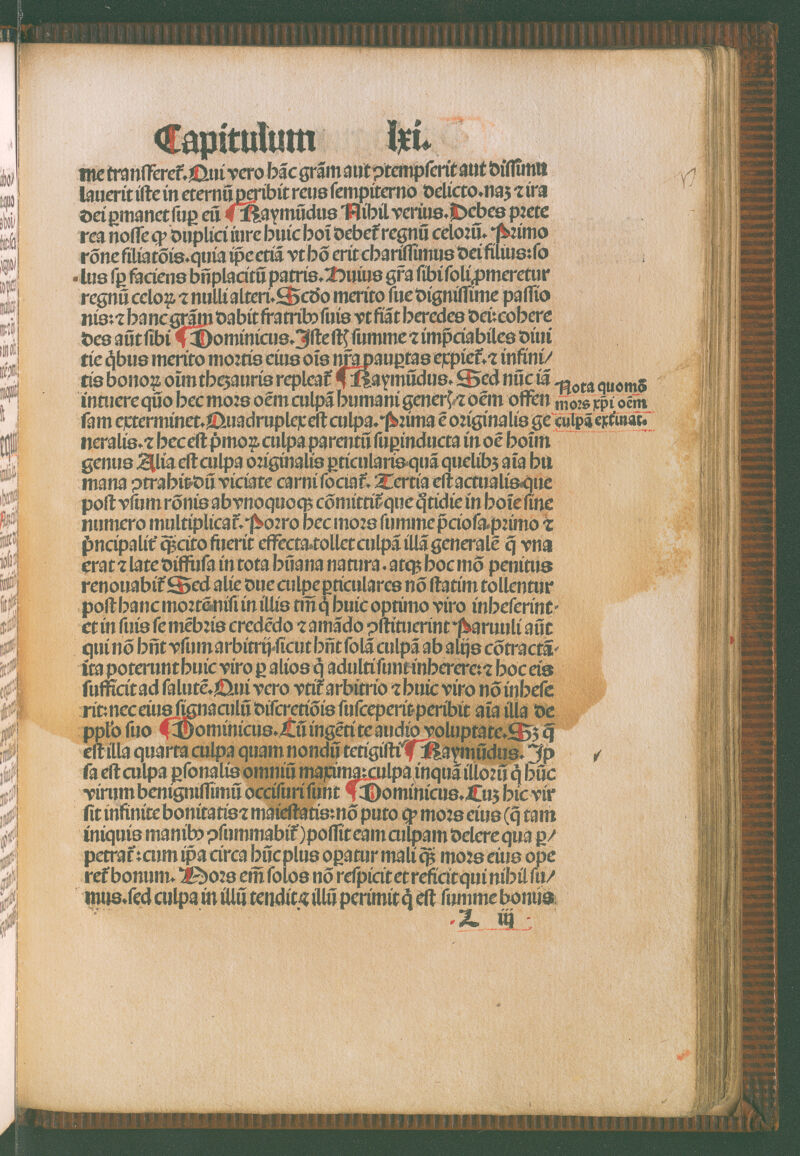 Capitulum lxi.
me transferet᷑. Qui vero hāc grām aut ꝯtempserit aut dissimu
lauerit iste in eternū peribit reus sempiterno delicto. naꝫ ⁊ ira
dei ꝑmanet suꝑ eū ¶ Raymūdus Nihil verius. Debes prete
rea nosse ꝙ duplici iure huic hoī debet᷑ regnū celorū. Primo
rōne filiatōis. quia ip̄e etiā vt hō erit charissimus dei filius: so
lus sꝑ faciens bn̄placitū patris. Huius gr̄a sibi soli ꝓmeretur
regnū celoꝝ ⁊ nulli alteri. Scd̄o merito sue dignissime passio
nis: ⁊ hanc grām dabit fratribꝰ suis vt fiāt heredes dei: cohere
des aūt sibi ¶ Dominicus. Iste st̄ summe ⁊ imp̄ciabiles diui
tie q̇bus merito mortis eius oīs nr̄a pauꝑtas expiet᷑. ⁊ infini/
tis bonoꝝ oīm thezauris repleat᷑ ¶ Raymūdus. Sed nūc iā
intuere quō hec mors oēm culpā humani generꝭ ⁊ oēm offen
sam exterminet. Quadruplex est culpa. Prima ē originalis ge
neralis. ⁊ hec est p̄moꝝ culpa parentū suꝑinducta in oē hoīm
genus Alia est culpa originalis ꝑticularis quā quelibꝫ aīa hu
mana ꝯtrahit dū viciate carni sociat᷑. Tertia est actualis que
post vsum rōnis ab vnoquoqꝫ cōmittit᷑ que q̇tidie in hoīe sine
numero multiplicat᷑. Porro hec mors summe p̄ciosa. primo ⁊
p̄ncipalit᷑ qꝫ̄ cito fuerit effecta tollet culpā illā generalē q̄ vna
erat ⁊ late diffusa in tota hūana natura. atqꝫ hoc mō penitus
renouabit᷑ Sed alie due culpe ꝑticulares nō statim tollentur
post hanc mortē nisi in illis tm̄ q̇ huic optimo viro inheserint.
et in suis se mēbris credēdo ⁊ amādo ꝯstituerint Paruuli aūt
qui nō hn̄t vsum arbitrij. sicut hn̄t solā culpā ab alijs cōtractā.
ita poterunt huic viro ꝑ alios q̇ adulti sunt inherere: ⁊ hoc eis
sufficit ad salutē. Qui vero vtit᷑ arbitrio ⁊ huic viro nō inhese
rit: nec eius signaculū discretiōis susceperit peribit aīa illa de
pplo suo ¶ Dominicus. Cū ingēti te audio voluptate. Sꝫ q̄
est illa quarta culpa quam nondū tetigisti ¶ Raymūdus. Ip
sa est culpa ꝑsonalis omniū maxima: culpa inquā illorū q̇ hūc
virum benignissimū occisuri sunt ¶ Dominicus. Cuꝫ hic vir
sit infinite bonitatis ⁊ maiestatis: nō puto ꝙ mors eius (q̄ tam
iniquis manibꝰ ꝯsummabit᷑) possit eam culpam delere qua ꝑ/
petrat᷑: cum ip̄a circa hūc plus oꝑatur mali qꝫ̄ mors eius ope
ret᷑ bonum. Mors em̄ solos nō respicit et reficit qui nihil su/
mus. sed culpa in illū tendit ⁊ illū perimit q̇ est summe bonus
L iij
Nota quomō
mors xp̄i oēm
culpā extinat.